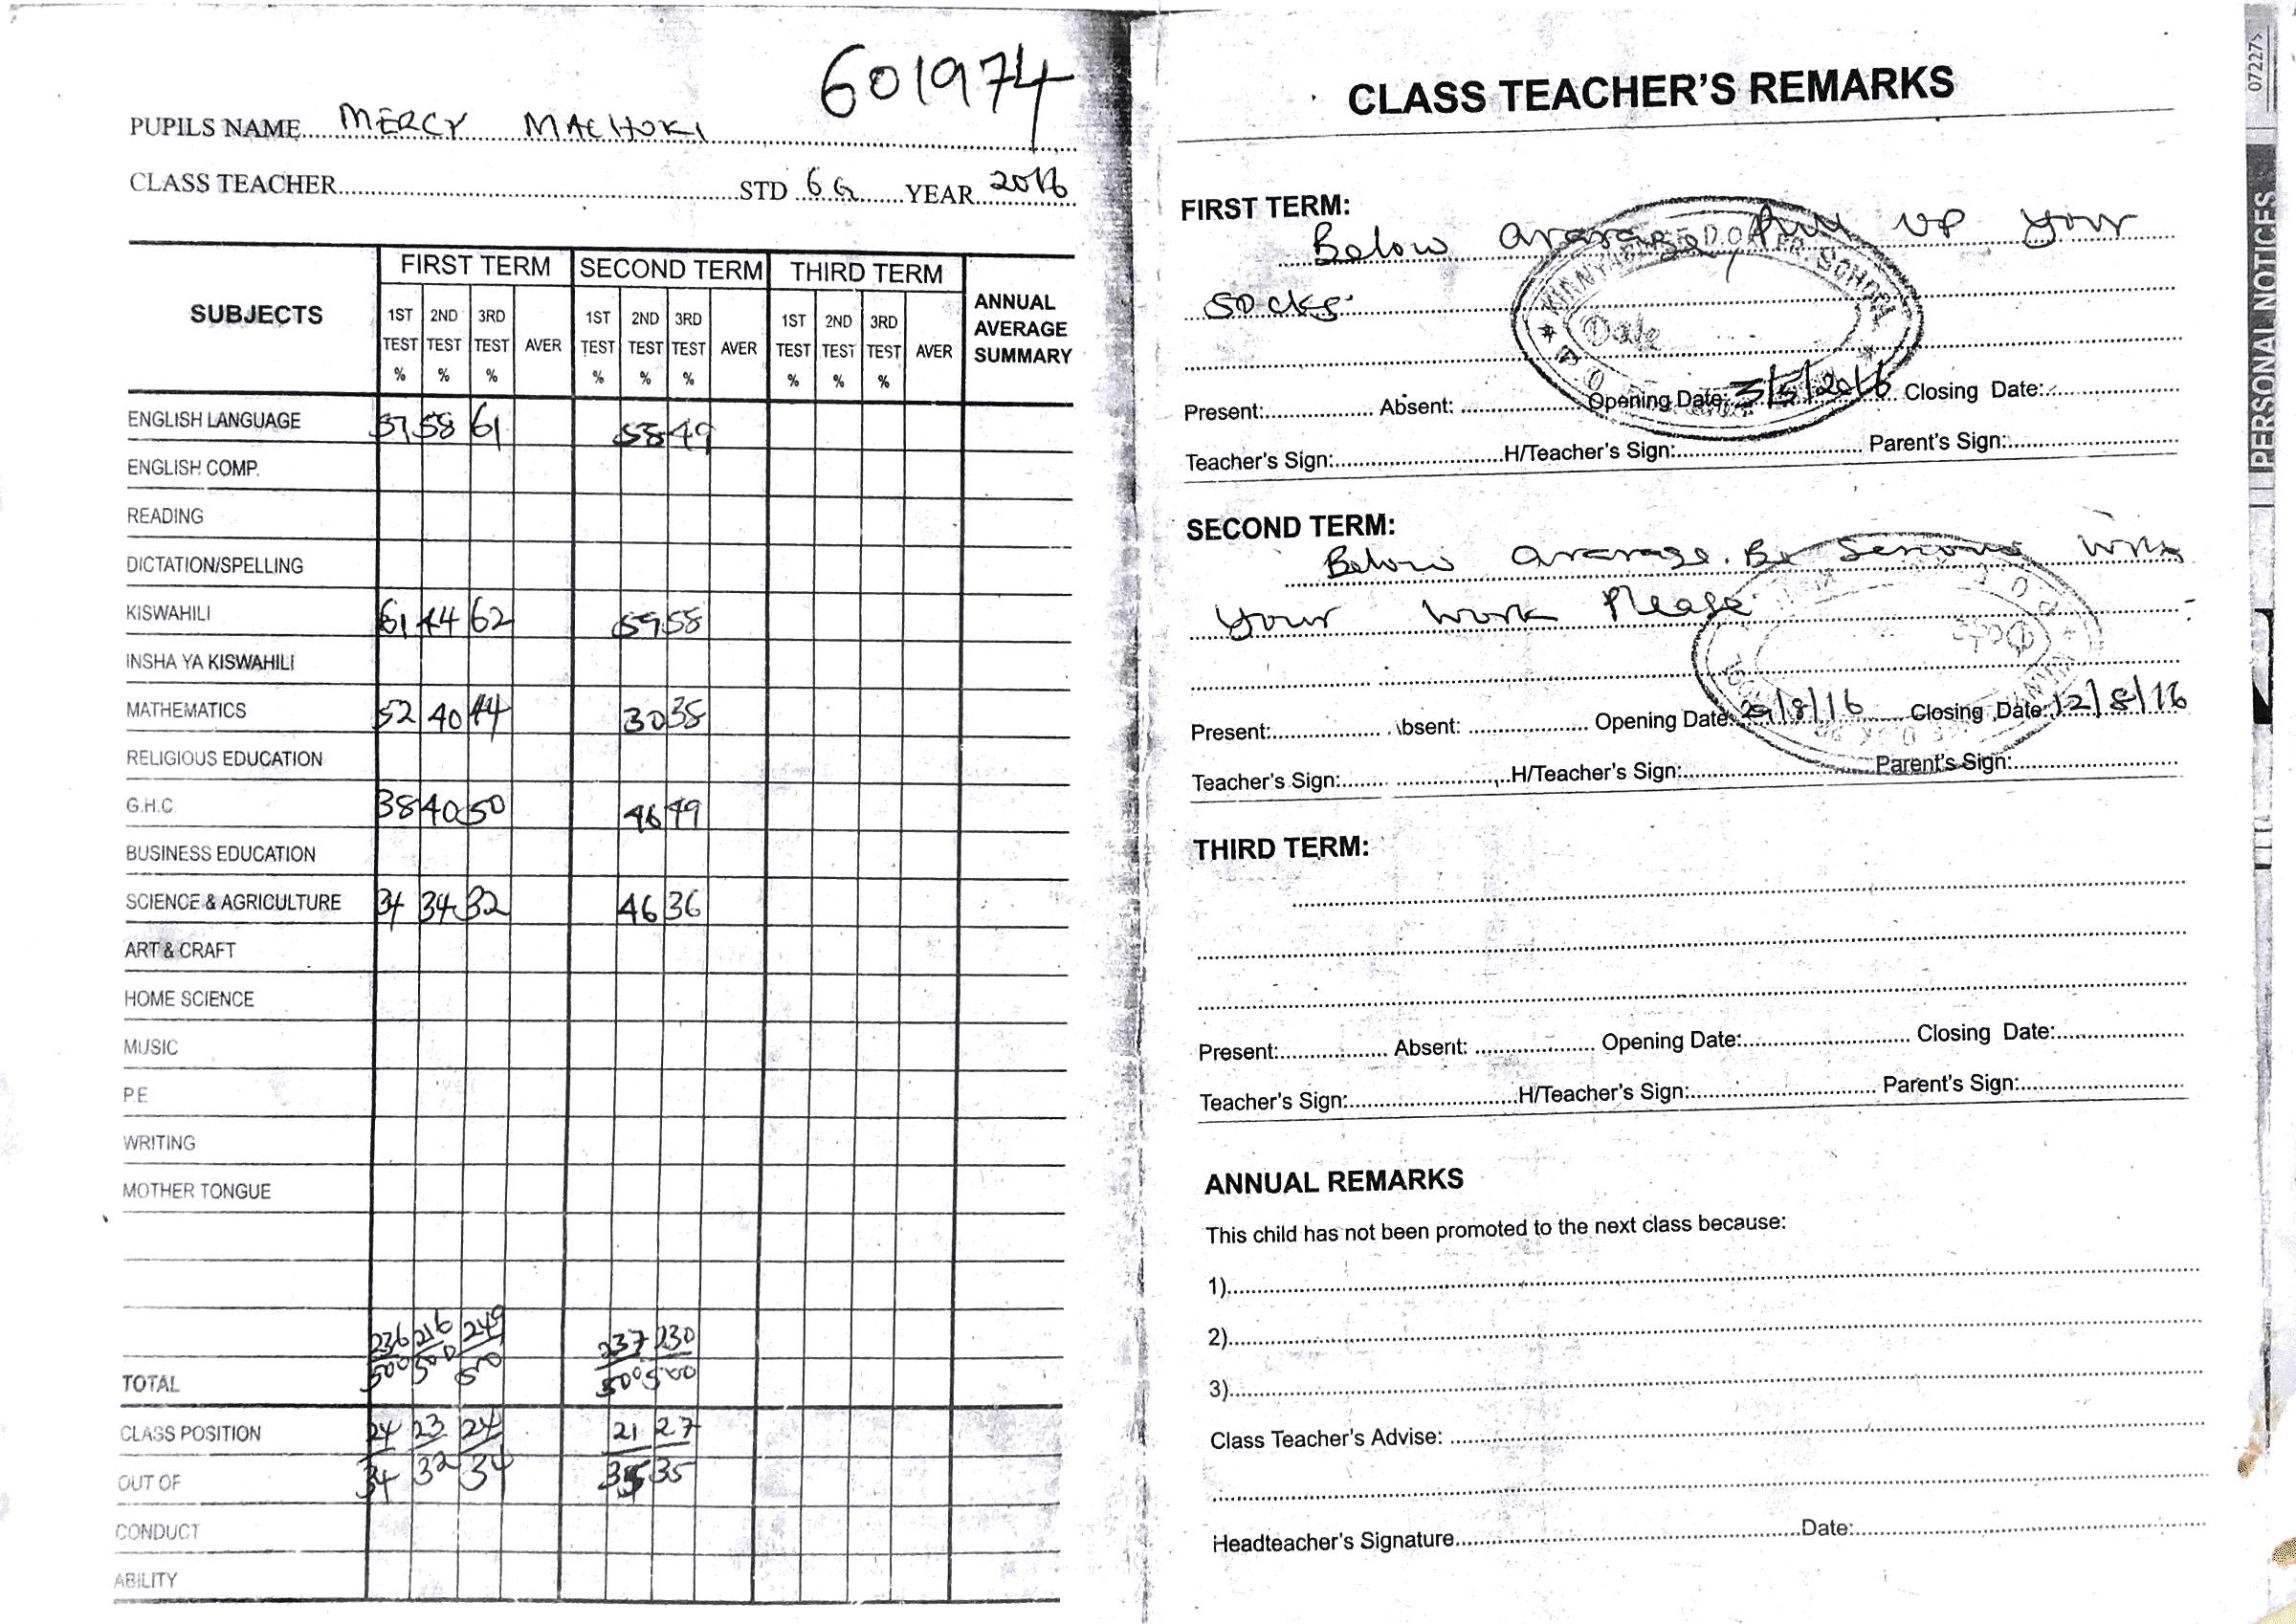 601974
PUPILS NAME MERCY MACHOKI
CLASS TEACHER STD 6G YEAR 2016
SUBJECTS FIRST TERM SECOND TERM THIRD TERM ANNUAL AVERAGE SUMMARY
1ST TEST % 2ND TEST % 3RD TEST % AVER 1ST TEST % 2ND TEST % 3RD TEST % AVER 1ST TEST % 2ND TEST % 3RD TEST % AVER
ENGLISH LANGUAGE 57 58 61 49
ENGLISH COMP.
READING
DICTATION/SPELLING
KISWAHILI 61 44 62 59 58
INSHA YA KISWAHILI
MATHEMATICS 52 40 44 30 38
RELIGIOUS EDUCATION
G.H.C 38 40 50 46 49
BUSINESS EDUCATION
SCIENCE & AGRICULTURE 34 34 32 46 36
ART & CRAFT
HOME SCIENCE
MUSIC
P.E
WRITING
MOTHER TONGUE
236 216 249 237 230
TOTAL 500 500 500 500 500
CLASS POSITION 24 23 24 21 27
OUT OF 34 32 34 35 35
CONDUCT
ABILITY
CLASS TEACHER'S REMARKS
FIRST TERM:
Below ararage, pull up your
socks.
Date
Present: Absent: Opening Date: 3/5/2016 Closing Date:
Teacher's Sign: H/Teacher's Sign: Parent's Sign:
SECOND TERM:
Below ararage. Be serious with
your work please
Present: Absent: Opening Date: 29/8/16 Closing Date: 12/8/16
Teacher's Sign: H/Teacher's Sign: Parent's Sign:
THIRD TERM:
Present: Absent: Opening Date: Closing Date:
Teacher's Sign: H/Teacher's Sign: Parent's Sign:
ANNUAL REMARKS
This child has not been promoted to the next class because:
1)
2)
3)
Class Teacher's Advise:
Headteacher's Signature Date:
07227
PERSONAL NOTICES